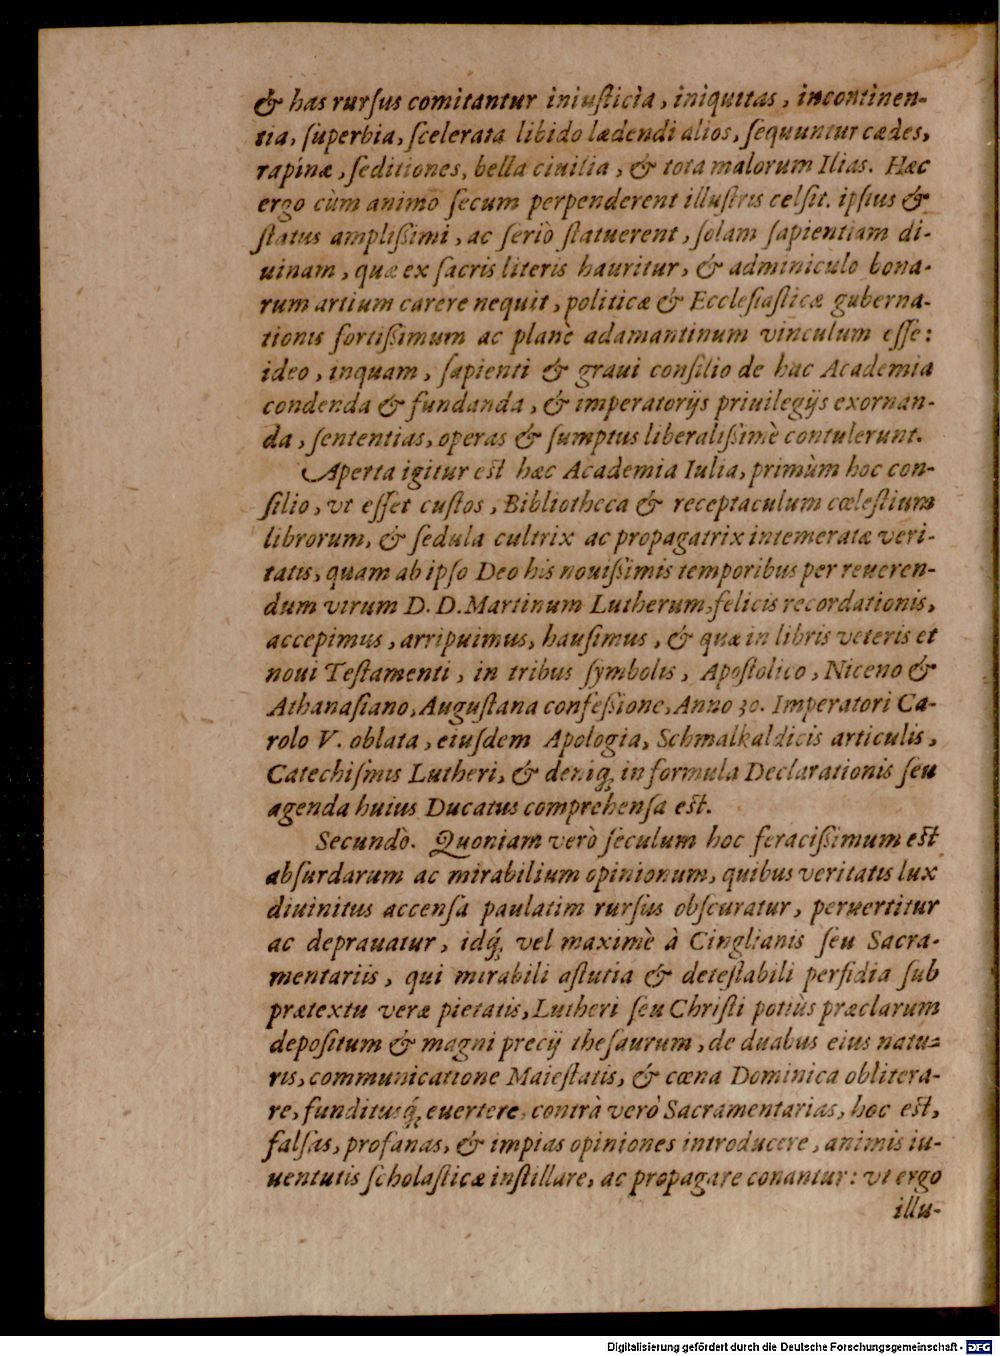 & has rursus comitantur iniusticia, iniquitas, incontinen-
tia, superbia, scelerata libido lædendi alios, sequuntur cædes,
rapinæ, seditiones, bella ciuilia, & tota malorum Ilias. Hæc
ergo cùm animo secum perpenderent illustris celsit. ipsius &
status amplißimi, ac seriò statuerent, solam sapientiam di-
uinam, quæ ex sacris literis hauritur, & adminiculo bona-
rum artium carere nequit, politicæ & Ecclesiasticæ guberna-
tionis fortißimum ac planè adamantinum vinculum esse:
ideo, inquam, sapienti & graui consilio de hac Academia
condenda & fundanda, & imperatorijs priuilegijs exornan-
da, sententias, operas & sumptus liberalißimè contulerunt.
Aperta igitur est hæc Academia Iulia, primùm hoc con-
silio, vt esset custos, Bibliotheca & receptaculum cœlestium
librorum, & sedula cultrix ac propagatrix intemeratæ veri-
tatis, quam ab ipso Deo his nouißimis temporibus per reueren-
dum virum D. D. Martinum Lutherum, felicis recordationis,
accepimus, arripuimus, hausimus, & quæ in libris veteris et
noui Testamenti, in tribus symbolis, Apostolico, Niceno &
Athanasiano, Augustana confeßione, Anno 30. Imperatori Ca-
rolo V. oblata, eiusdem Apologia, Schmalkaldicis articulis,
Catechismis Lutheri, & deniq́, in formula Declarationis seu
agenda huius Ducatus comprehensa est.
Secundò. Quoniam verò seculum hoc feracißimum est
absurdarum ac mirabilium opinionum, quibus veritatis lux
diuinitus accensa paulatim rursus obscuratur, peruertitur
ac deprauatur, idq́, vel maximè à Cinglianis seu Sacra-
mentariis, qui mirabili astutia & detestabili perfidia sub
prætextu veræ pietatis, Lutheri seu Christi potiùs præclarum
depositum & magni precij thesaurum, de duabus eius natu-
ris, communicatione Maiestatis, & cœna Dominica oblitera-
re, funditusq́, euertere, contrà verò Sacramentarias, hoc est,
falsas, profanas, & impias opiniones introducere, animis iu-
uentutis scholasticæ instillare, ac propagare conantur: vt ergo
illu-
Digitalisierung gefördert durch die Deutsche Forschungsgemeinschaft - DFG